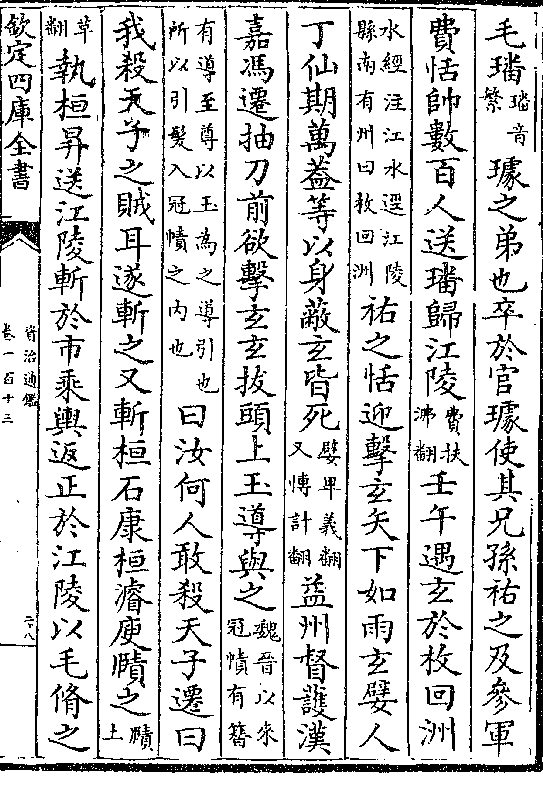 毛璠璠音繁璩之弟也卒於官璩使其兄孫祐之及參軍
費恬帥數百人送璠歸江陵費扶沸翻壬午遇玄於枚回洲
水經注江水逕江陵縣南有州曰枚回洲祐之恬迎擊玄矢下如雨玄嬖人
丁仙期萬蓋等以身蔽玄皆死嬖卑義翻又博計翻益州督護漢
嘉馮遷抽刀前欲擊玄玄拔頭上玉導與之魏晉以來冠幘有簪
有導至尊以玉為之導引也所以引髮入冠幘之内也曰汝何人敢殺天子遷曰
我殺天子之賊耳遂斬之又斬桓石康桓濬庾賾之賾士
革翻執桓昇送江陵斬於市乘輿返正於江陵以毛脩之
欽定四庫全書
資治通鑑
卷一百十三